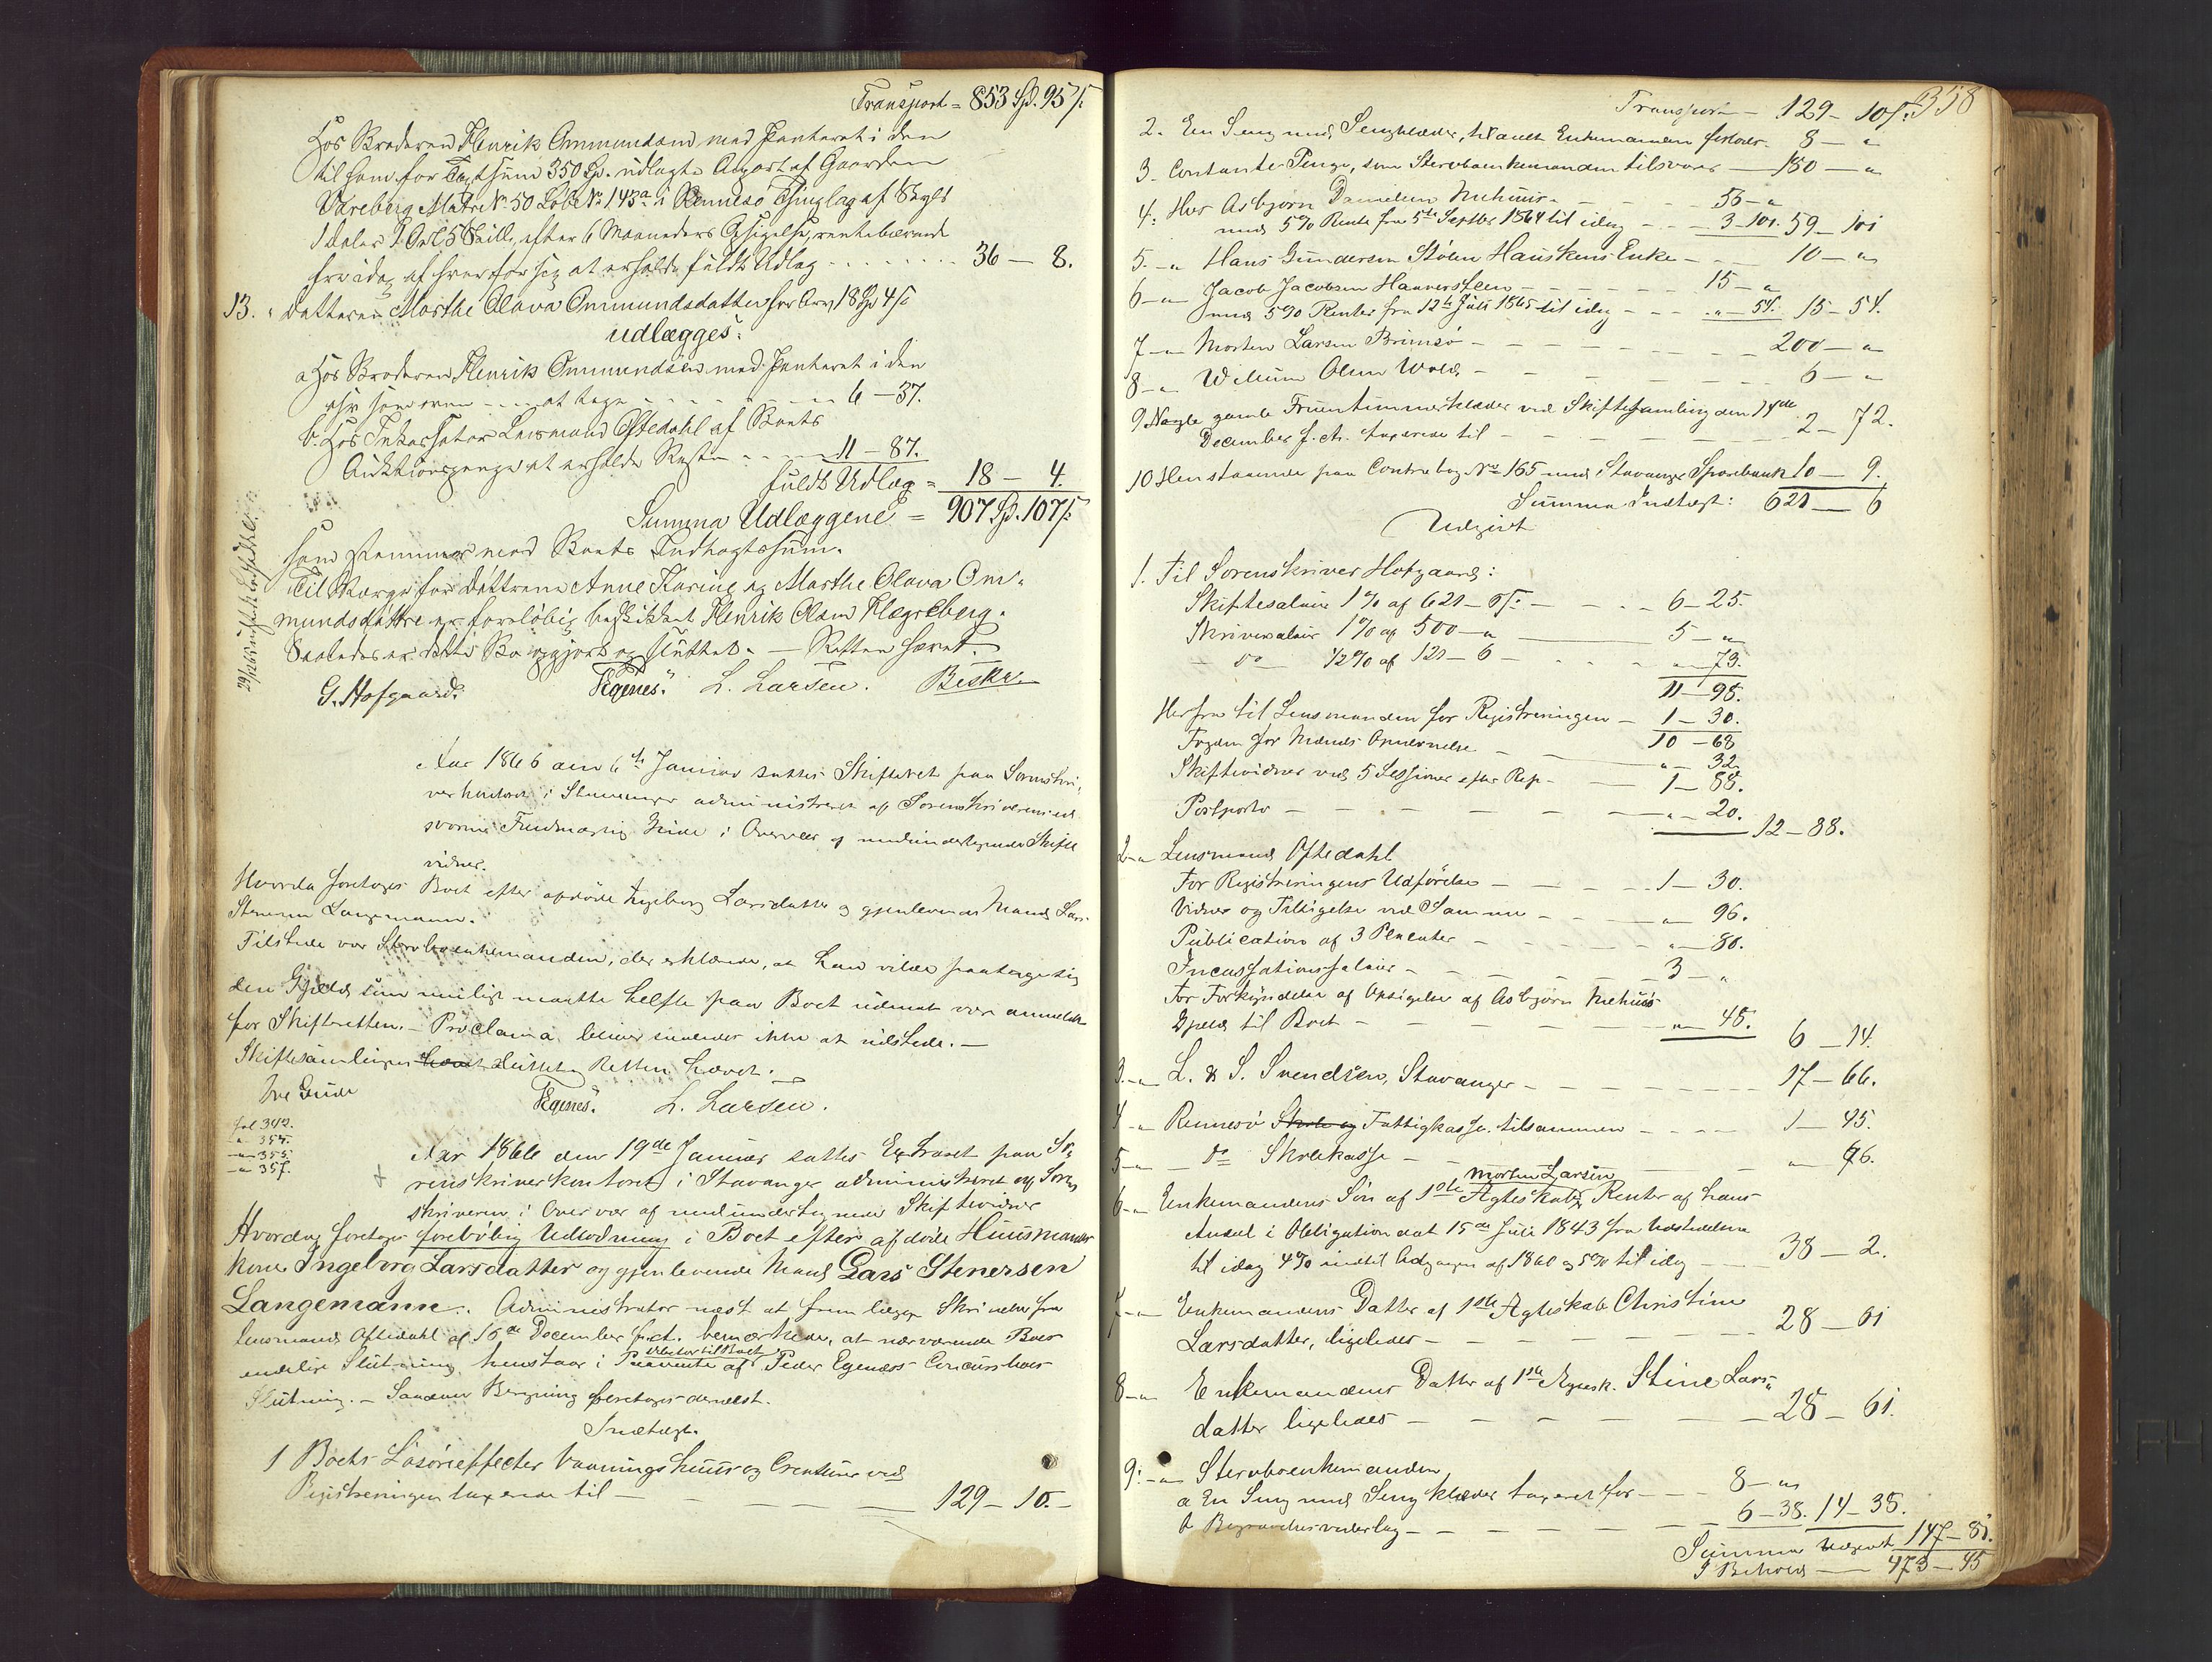 Transport = 853 Spd. 95 ß.
Hos Broderen Henrik Ommundsen med Panteret i den
til ham for Taxtsum 350 Spd. udlagte Anpart af Gaarden
Vareberg Matr. No. 50 Løbe No. 143a i Rennesø Thinglag af Skyld
1 Daler 1 Ort 5 Skill., efter 6 Maaneders Opsigelse, rentebærende
fra idag af hvorfor sig at erholde fuldt Udlæg - - - - 36 — 8.
13. " Datteren Marthe Olava Ommundsdatter for Arv 18 Spd 4 ß
udlægges:
a Hos Broderen Henrik Ommundsen med Panteret i den
som oven - - - at tage - - - - 6 — 37.
b. Hos Inkassator Lensmand Oftedahl af Boets
Auktionspenge at erholde Resten - - - 11 — 87.
fuldt Udlæg = 18 — 4.
Summa Udlæggene = 907 Spd. 107 ß
som stemmer med Boets Indtægtssum.
Til Værge for Døttrene Anne Karine og Marthe Olava Om-
mundsdøttre er foreløbig beskikket Henrik Olsen Klegreberg.
Saaledes er dette Bo opgjort og sluttet. — Retten hævet.
G. Hofgaard. Egenes. L. Larsen. Beskr.
Aar 1866 den 6te Januar sattes Skifteret paa Sorenskri-
verkontoret i Stavanger administreret af Sorenskriverens ed-
svorne Fuldmægtig Gude i Overvær af medundertegnede Skifte
vidner.
Hvorda foretoges Boet efter afdøde Ingeborg Larsdatter og gjenlevende Mand Lars
Stenersen Langemann.
Tilstede var Stervboenkemanden, der erklærede, at han vilde paatage sig
den Gjeld som muligt maatte hefte paa Boet uden at være anmeldt
for Skifteretten. — Proclama bliver saaledes ikke at udstede. —
Skiftesamlingen hævet sluttet. Retten hævet.
Ove Gude Egenes. L. Larsen.
fol 342.
" 354.
" 355.
" 357.
Aar 1866 den 19de Januar sattes Extraret paa So-
renskriverkontoret i Stavanger administreret af Soren
skriveren i Overvær af medundertegnede Skiftevidner
Hvorda foretages forebølig Udlodning i Boet efter afdøde Huusmands
kone Ingeborg Larsdatter og gjenlevende Mand Lars Stenersen
Langemann. Administrator næst at fremlægge Skrivelse fra
Lensmand Oftedahl af 15de December f. A. bemærkede, at nærværende Boes
debitor til Boet
endelige Slutning henstaar i Paavente af Peder Egenæss Concursboes
Slutning. — Saadan Beregning foretoges dernæst.
Indtægt.
1 Boets Løsøreffecter Vaaningshuus og Creaturer ved
Registreringen taxerede til — — — — 129 — 10. —
358
Transport — 129 — 10 ß.
2. En Seng med Sengklæder, tillaadt Enkemanden forlods 8 — "
3. Contante Penge, som Stervboenkemanden tilsvarer — 180 — "
4. Hos Asbjørn Danielsen Mehuus — — 56 — "
med 5% Rente fra 5te Septbr 1864 til idag — — 3 — 101. 59 — 101
5. — " Hans Gundersen Stølen Hauskens Enke — — 10 — "
6 — " Jacob Jacobsen Hanversteen — — 15 — "
med 5% Renter fra 12te Juli 1865 til idag — — " — 54. 15 — 54.
7 — " Morten Larsen Brimsø — — — 200 — "
8 — " Willum Olsen Wold — — — 6 — "
9 Nogle gamle Fruentimmerklæder ved Skiftesamling den 14de
December f. A. taxerede til — — — 2 — 72.
10 Henstaaende paa Contrabog No 165 med Stavanger Sparebank 10 — 9.
Summa Indtægt: 621 — 6
Udgivt
1. Til Sorenskriver Hofgaard:
Skiftesalair 1% af 621 — 6 ß. — — 6 — 25.
Skriversalair 1% af 500 — " — 5 — "
— do — ½% af 121 — 6 — — " — 73.
11 — 98.
Herfra til Lensmanden for Registreringen — 1 — 30.
10 — 68
Fogden for Mænds Opnævnelse — " — 32
Skiftevidner ved 5 Sessioner efter Rep — 1 — 88.
Postporto — — — " — 20. 12 — 88.
2 — " Lensmand Oftedahl
For Registreringens Udførelse — — 1 — 30.
Vidner og Tilsigelse ved Samme — — " — 96.
Publication af 3 Placater — — " — 80.
Incassationssalair — — 3 — "
For Forkyndelse af Opsigelse af Asbjørn Mehuus
Gjeld til Boet — — " — 48. 6 — 14.
3. — " L. & S. Svendsen, Stavanger — — 17 — 66.
4 — " Rennesø Skole og Fattigkasse tilsammen — — 1 — 45.
5 — " — do — Skolekasse — — " — 96.
Morten Larsen
6 — " Enkemandens Søn af 1ste Ægteskab Renter af hans
Andeel i Obligation dat 15de Juli 1843 fra Udstedelsen
til idag 4% indtil Udgangen af 1860 og 5% til idag — 38 — 2.
7 — " Enkemandens Datter af 1ste Ægteskab Christine
Larsdatter, ligeledes — — — 28 — 61
8 — " Enkemandens Datter af 1ste Ægtesk. Stine Lars-
datter ligeledes — — — 28 — 61.
9. — " Stervboenkemanden
a En Seng med Sengklæder taxeret for — 8 — "
b Begravelsesvederlag — — — 6 — 38. 14 — 38.
Summa Udgivt 147 — 81.
I Behold — 473 — 45